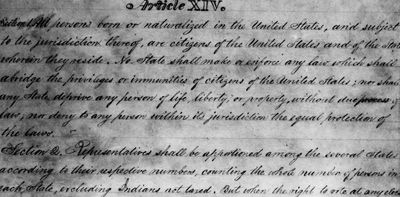 Article XIV.
Section 1. All persons born or naturalized in the United States, and subject
to the jurisdiction thereof, are citizens of the United States and of the State
wherein they reside. No State shall make or enforce any law which shall
abridge the privileges or immunities of citizens of the United States; nor shall
any State deprive any person of life, liberty, or property, without due process of
law; nor deny to any person within its jurisdiction the equal protection of
the laws.
Section 2. Representatives shall be apportioned among the several States
according to their respective numbers, counting the whole number of persons in
each State, excluding Indians not taxed. But when the right to vote at any